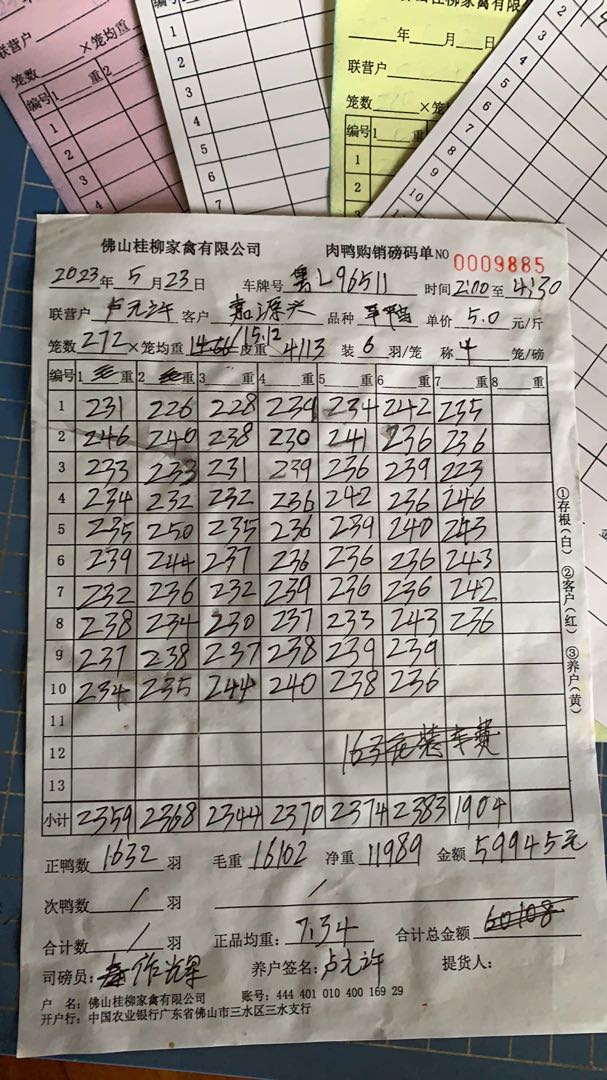 联营户
笼数 ×笼均重
编号 1 重 2
1
2
3
4
1
2
3
4
5
6
7
佛山桂柳家禽有限公
年 月 日
联营户
笼数 ×笼均
编号 1 重
1
2
2
3
4
5
6
7
8
9
10
佛山桂柳家禽有限公司 肉鸭购销磅码单 NO 0009885
2023年5月23日 车牌号 粤L96511 时间 2:00 至 4:30
联营户 卢元许 客户 嘉源兴 品种 单价 5.0 元/斤
笼数 272 ×笼均重 15.12 皮重 4113 装 6 羽/笼 称 4 笼/磅
编号 1 毛 重 2 重 3 重 4 重 5 重 6 重 7 重 8 重
1 231 226 228 239 234 242 235
2 246 240 238 230 241 236 236
3 233 233 231 239 236 239 223
4 234 232 232 236 242 236 246
5 235 250 235 236 239 240 243
6 239 244 237 236 236 236 243
7 232 236 232 239 236 236 242
8 238 234 230 237 233 243 236
9 237 238 237 238 239 239
10 234 235 244 240 238 236
11
12 163元装车费
13
小计 2359 2368 2344 2370 2374 2383 1904
正鸭数 1632 羽 毛重 16102 净重 11989 金额 59945元
次鸭数 / 羽 /
合计数 / 羽 正品均重: 7.34 合计总金额 60108
司磅员: 作辉 养户签名: 卢元许 提货人:
户 名: 佛山桂柳家禽有限公司 账号: 444 401 010 400 169 29
开户行: 中国农业银行广东省佛山市三水区三水支行
①存根(白) ②客户(红) ③养户(黄)